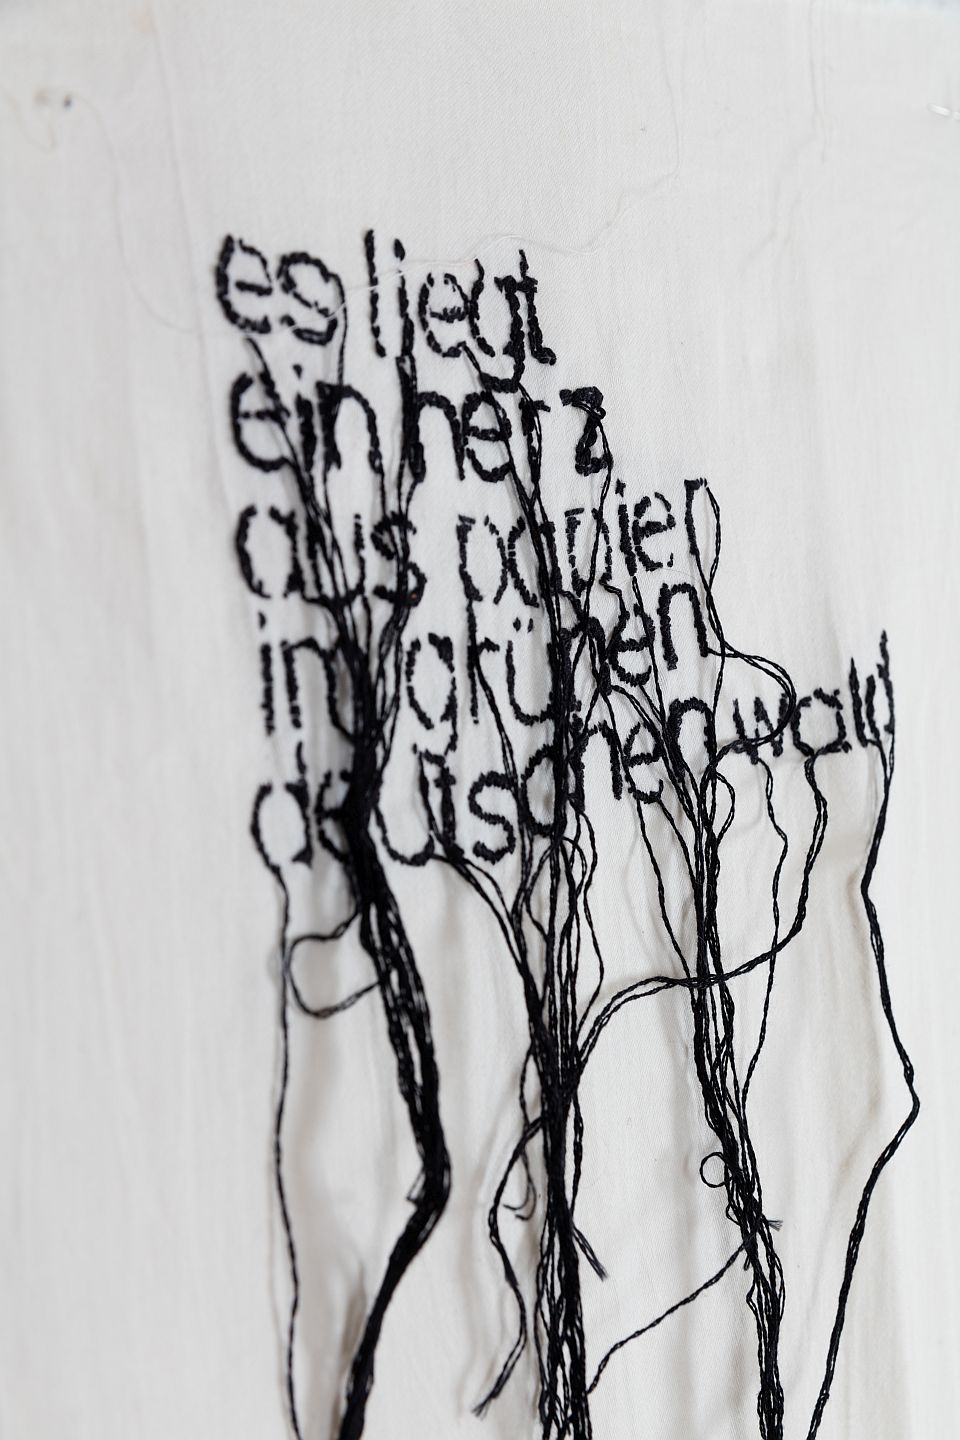 es liegt
ein herz
aus papier
im grünen
deutschen wald